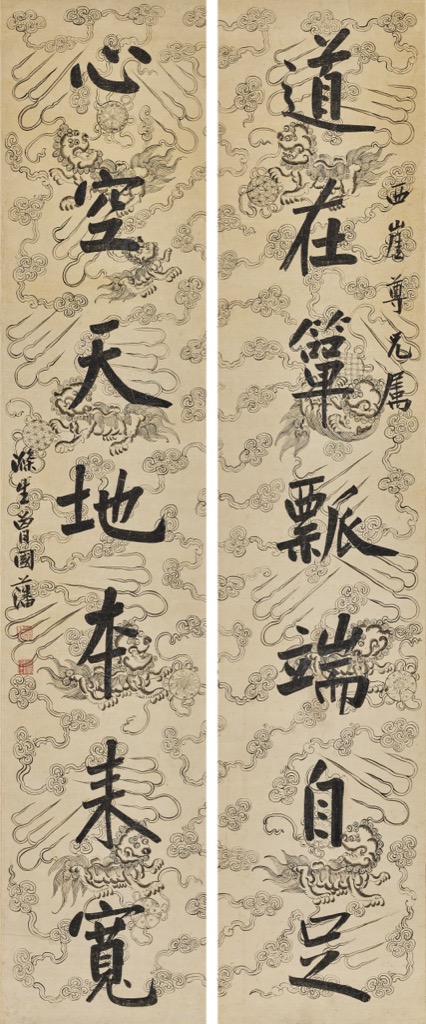 道在簞瓢端自足
西崖尊兄屬
心空天地本來寬
滌生曾國藩